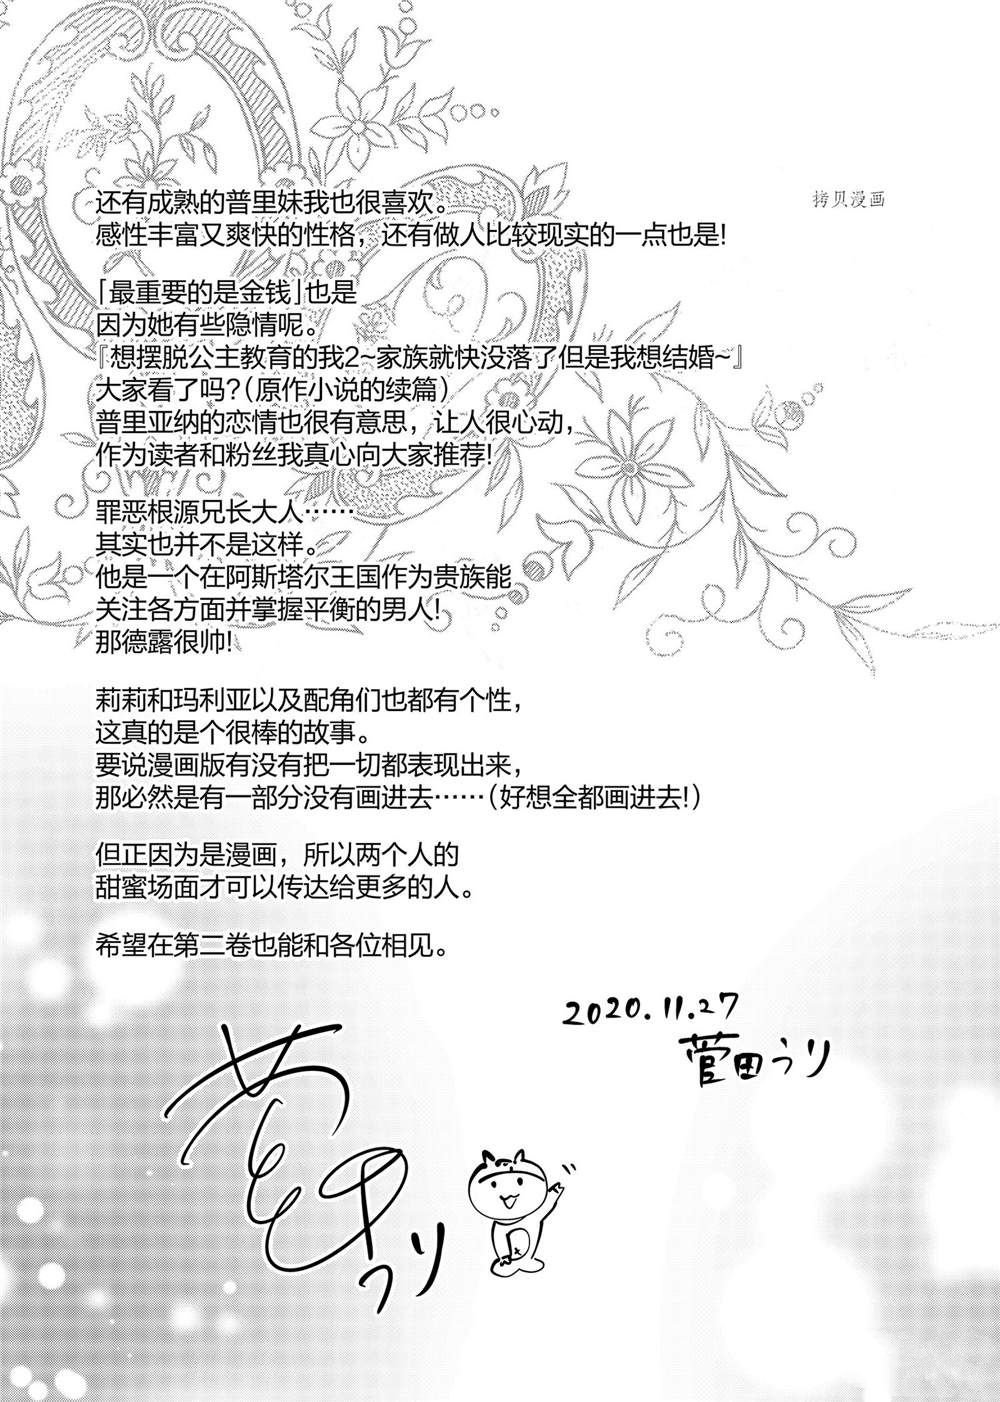 拷贝漫画
还有成熟的普里妹我也很喜欢。
感性丰富又爽快的性格，还有做人比较现实的一点也是!
「最重要的是金钱」也是
因为她有些隐情呢。
『想摆脱公主教育的我2~家族就快没落了但是我想结婚~』
大家看了吗?(原作小说的续篇)
普里亚纳的恋情也很有意思，让人很心动，
作为读者和粉丝我真心向大家推荐!
罪恶根源兄长大人……
其实也并不是这样。
他是一个在阿斯塔尔王国作为贵族能
关注各方面并掌握平衡的男人!
那德露很帅!
莉莉和玛利亚以及配角们也都有个性，
这真的是个很棒的故事。
要说漫画版有没有把一切都表现出来，
那必然是有一部分没有画进去……(好想全都画进去!)
但正因为是漫画，所以两个人的
甜蜜场面才可以传达给更多的人。
希望在第二卷也能和各位相见。
2020.11.27
菅田うり